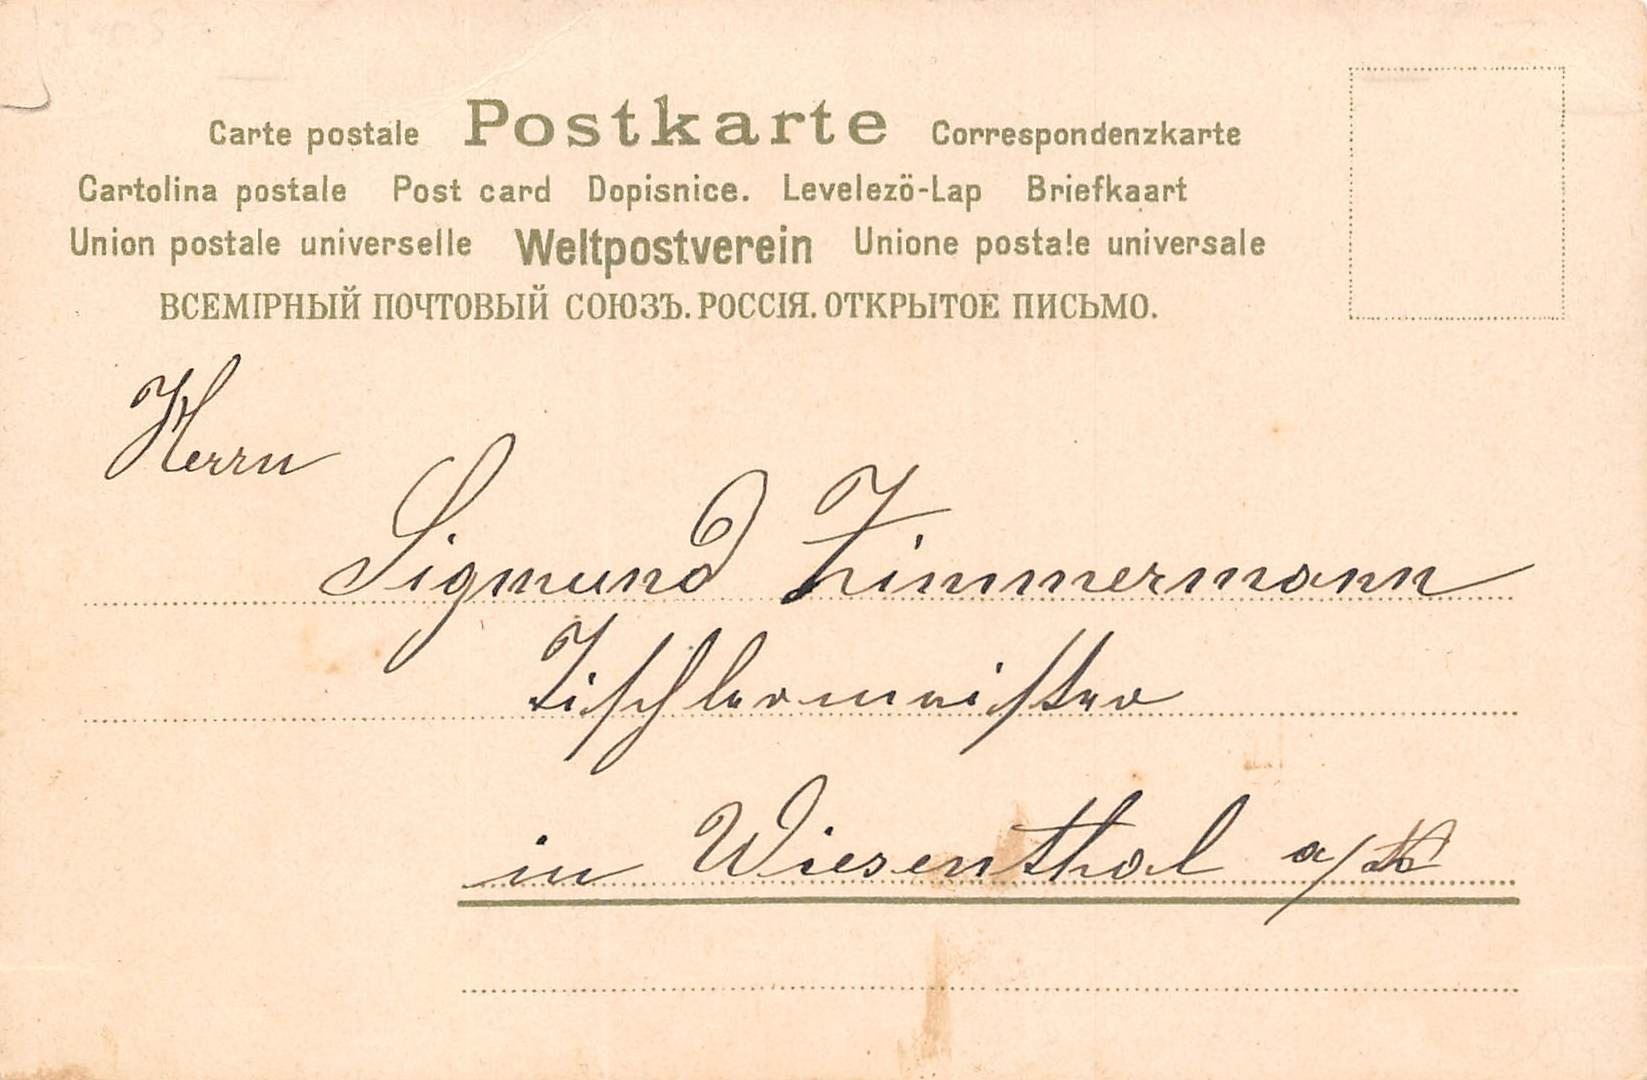 Carte postale Postkarte Correspondenzkarte
Cartolina postale Post card Dopisnice. Levelezö-Lap Briefkaart
Union postale universelle Weltpostverein Unione postale universale
ВСЕМІРНЫЙ ПОЧТОВЫЙ СОЮЗЪ. РОССІЯ. ОТКРЫТОЕ ПИСЬМО.
Herrn
Sigmund Zimmermann
Tischlermeister
in Wiesenthal a/